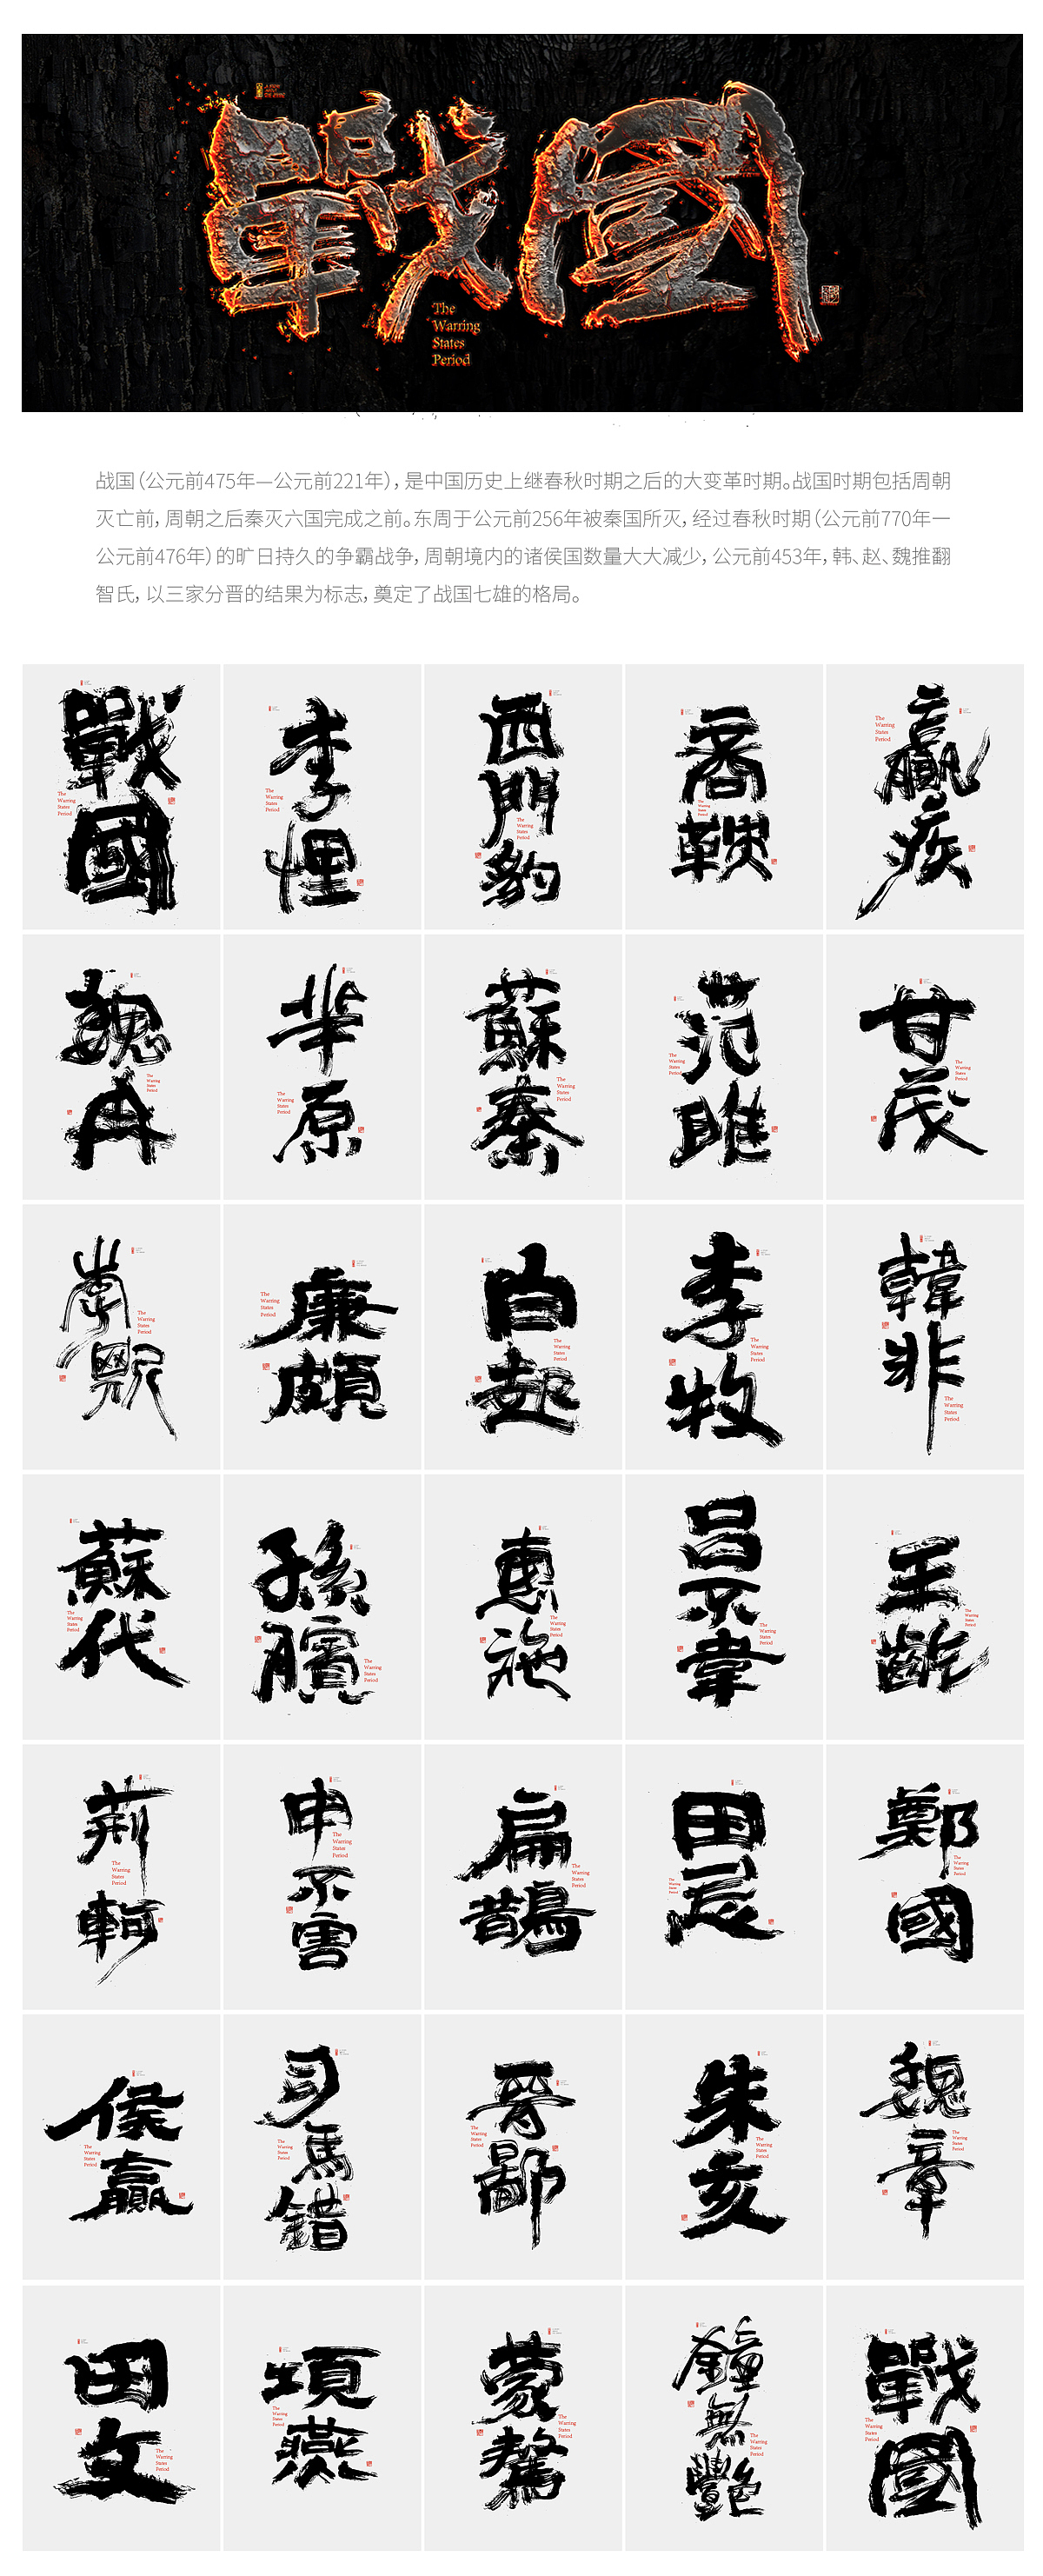 戰國
The
Warring
States
Period
战国（公元前475年—公元前221年），是中国历史上继春秋时期之后的大变革时期。战国时期包括周朝
灭亡前，周朝之后秦灭六国完成之前。东周于公元前256年被秦国所灭，经过春秋时期（公元前770年—
公元前476年）的旷日持久的争霸战争，周朝境内的诸侯国数量大大减少，公元前453年，韩、赵、魏推翻
智氏，以三家分晋的结果为标志，奠定了战国七雄的格局。
戰國
The
Warring
States
Period
李悝
The
Warring
States
Period
西門豹
The
Warring
States
Period
商鞅
The
Warring
States
Period
嬴疾
The
Warring
States
Period
魏冉
The
Warring
States
Period
羋原
The
Warring
States
Period
蘇秦
The
Warring
States
Period
范雎
The
Warring
States
Period
甘茂
The
Warring
States
Period
The
Warring
States
Period
廉頗
The
Warring
States
Period
白起
The
Warring
States
Period
李牧
The
Warring
States
Period
韓非
The
Warring
States
Period
蘇代
The
Warring
States
Period
孫臏
The
Warring
States
Period
惠施
The
Warring
States
Period
呂不韋
The
Warring
States
Period
王齕
The
Warring
States
Period
荊軻
The
Warring
States
Period
申不害
The
Warring
States
Period
扁鵲
The
Warring
States
Period
田忌
The
Warring
States
Period
鄭國
The
Warring
States
Period
侯嬴
The
Warring
States
Period
司馬錯
The
Warring
States
Period
晉鄙
The
Warring
States
Period
朱亥
The
Warring
States
Period
魏章
The
Warring
States
Period
田文
The
Warring
States
Period
項燕
The
Warring
States
Period
蒙驁
The
Warring
States
Period
鐘無艷
The
Warring
States
Period
戰國
The
Warring
States
Period